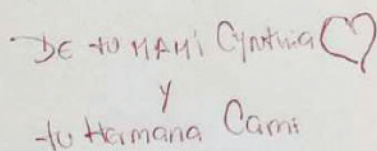 DE tu MAMi Cynthia
y
tu Hermana Cami